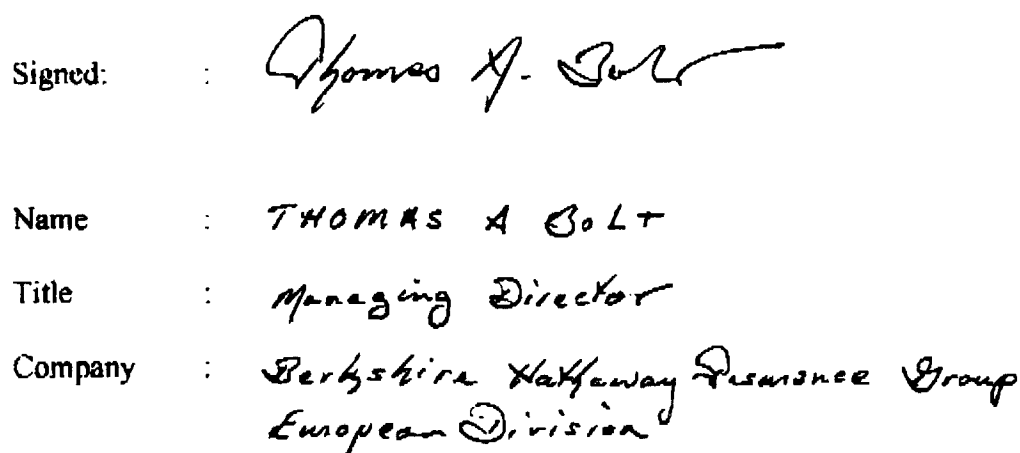 Signed: : Thomas A. Bolt
Name : THOMAS A BOLT
Title : Managing Director
Company : Berkshire Hathaway Insurance Group
European Division